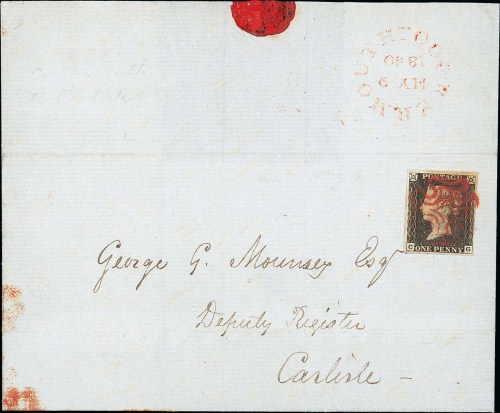 COCKERMOUTH
MY 9
1840
POSTAGE
C G
ONE PENNY
George G. Mounsey Esqr
Deputy Register
Carlisle